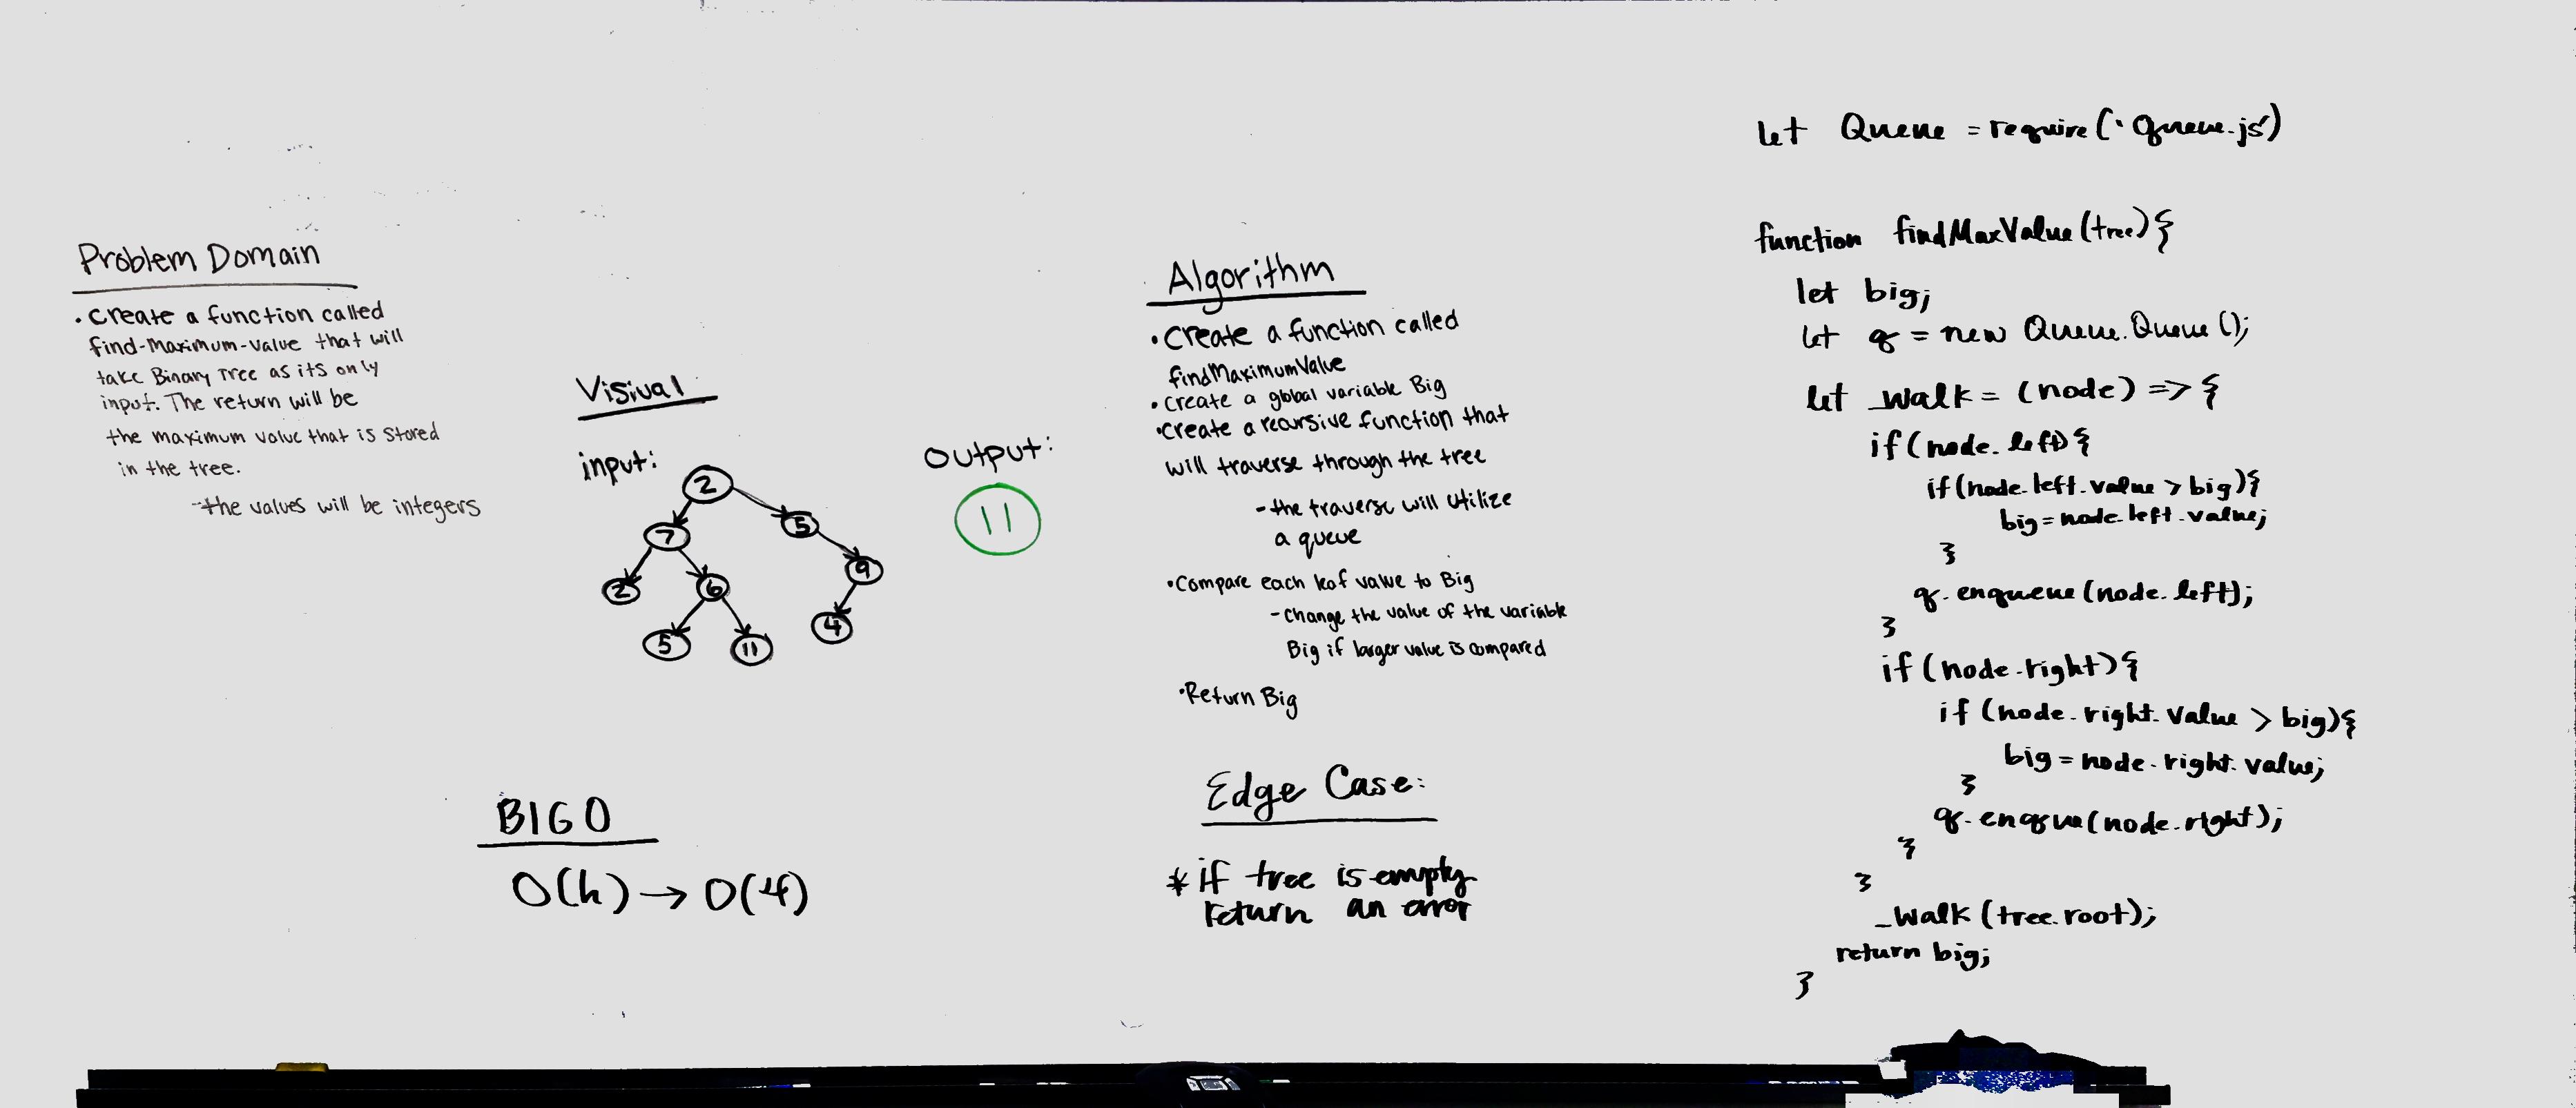 Problem Domain
• Create a function called
find-Maximum-value that will
take Binary Tree as its only
input. The return will be
the maximum value that is stored
in the tree.
- the values will be integers
Visiual
input:
2
7
5
2
6
9
5
11
4
Output:
11
BIG O
O(h) → O(4)
Algorithm
• Create a function called
findMaximumValue
• Create a global variable Big
• Create a recursive function that
will traverse through the tree
- the traverse will utilize
a queue
• Compare each leaf value to Big
- Change the value of the variable
Big if larger value is compared
• Return Big
Edge Case:
* if tree is empty
return an error
let Queue = require('Queue.js')
function findMaxValue(tree){
let big;
let q = new Queue.Queue();
let _walk = (node) => {
if(node.left){
if(node.left.value > big){
big = node.left.value;
}
q.enqueue(node.left);
}
if(node.right){
if (node.right.value > big){
big = node.right.value;
}
q.enqueue(node.right);
}
}
_walk(tree.root);
return big;
}